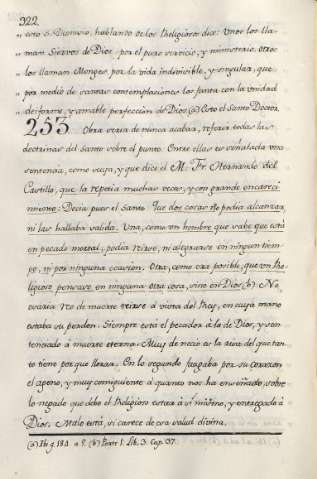 322.
" esto S. Dionisio, hablando de los Religiosos dice: Unos los lla-
" man Siervos de Dios, por el puro servicio, y ministerio: otros
" los llaman Monges, por la vida indivisible, y singular, que
por medio de santas contemplaciones los junta con la Unidad
deiforme, y amable perfeccion de Dios (a) Esto el Santo Doctor.
253 Obra seria de nunca acabar, referir todas las
doctrinas del Santo sobre el punto. Entre ellas es señalada una
sentencia, como suya, y que dice el M. Fr. Hernando del
Castillo, que la repetia muchas veces, y con grande encareci-
miento. Decia pues el Santo que dos cosas no podia alcanzar,
ni las hallaba salida. Una, como un hombre que sabe que está
en pecado mortal, podia reirse, ni alegrarse en ningun tiem-
po, ni por ninguna ocasion. Otra, como era posible, que un Re-
ligioso pensase, en ninguna otra cosa, sino en Dios (b) No
osaria reo de muerte reirse á vista del Rey, en cuya mano
estaba su perdon. Siempre está el pecador á la de Dios, y sen-
tenciado á muerte eterna. Muy de necio es la risa del que tan-
to tiene por que llorar. En lo segundo juzgaba por su corazon
el ageno, y muy consiguiente á quanto nos ha enseñado, sobre
lo negado que debe el Religioso estar á si mismo, y entregado á
Dios. Malo está, si carece de esa salud divina.
(a) Ib. q. 184. a. 5. (b) Part. 1. Lib. 3. Cap. 37.